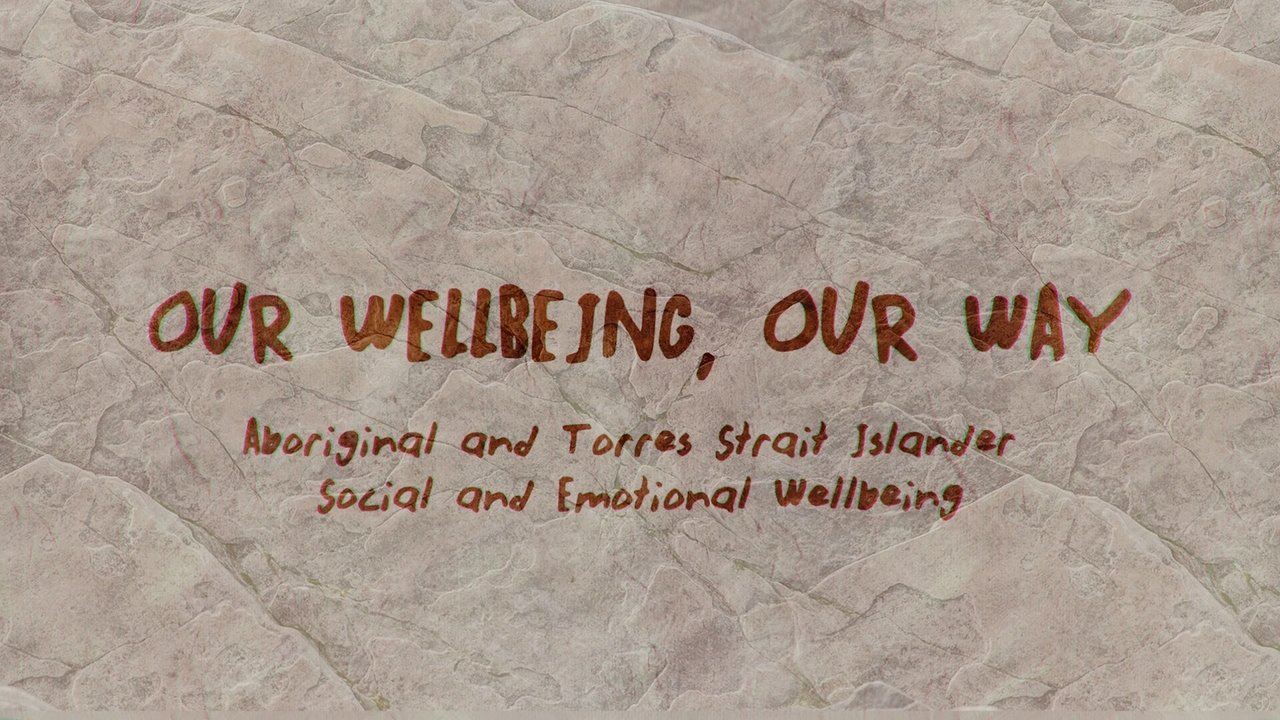 OUR WELLBEING, OUR WAY
Aboriginal and Torres Strait Islander
Social and Emotional Wellbeing